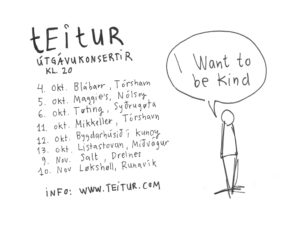 tEitur
ÚTGÁVUKONSERTIR
KL 20
4. Okt. Blábarr, Tórshavn
5. Okt. Maggie's, Nólsoy
6. Okt. Tøting, Syðrugøta
11. Okt. Mikkeller, Tórshavn
12. Okt. Bygdarhúsið í Kunoy
13. Okt. Listastovan, Miðvágur
9. Nov. Salt, Øreines
10. Nov Løkshøll, Runavík
INFO: WWW.TEITUR.COM
I Want to
be Kind